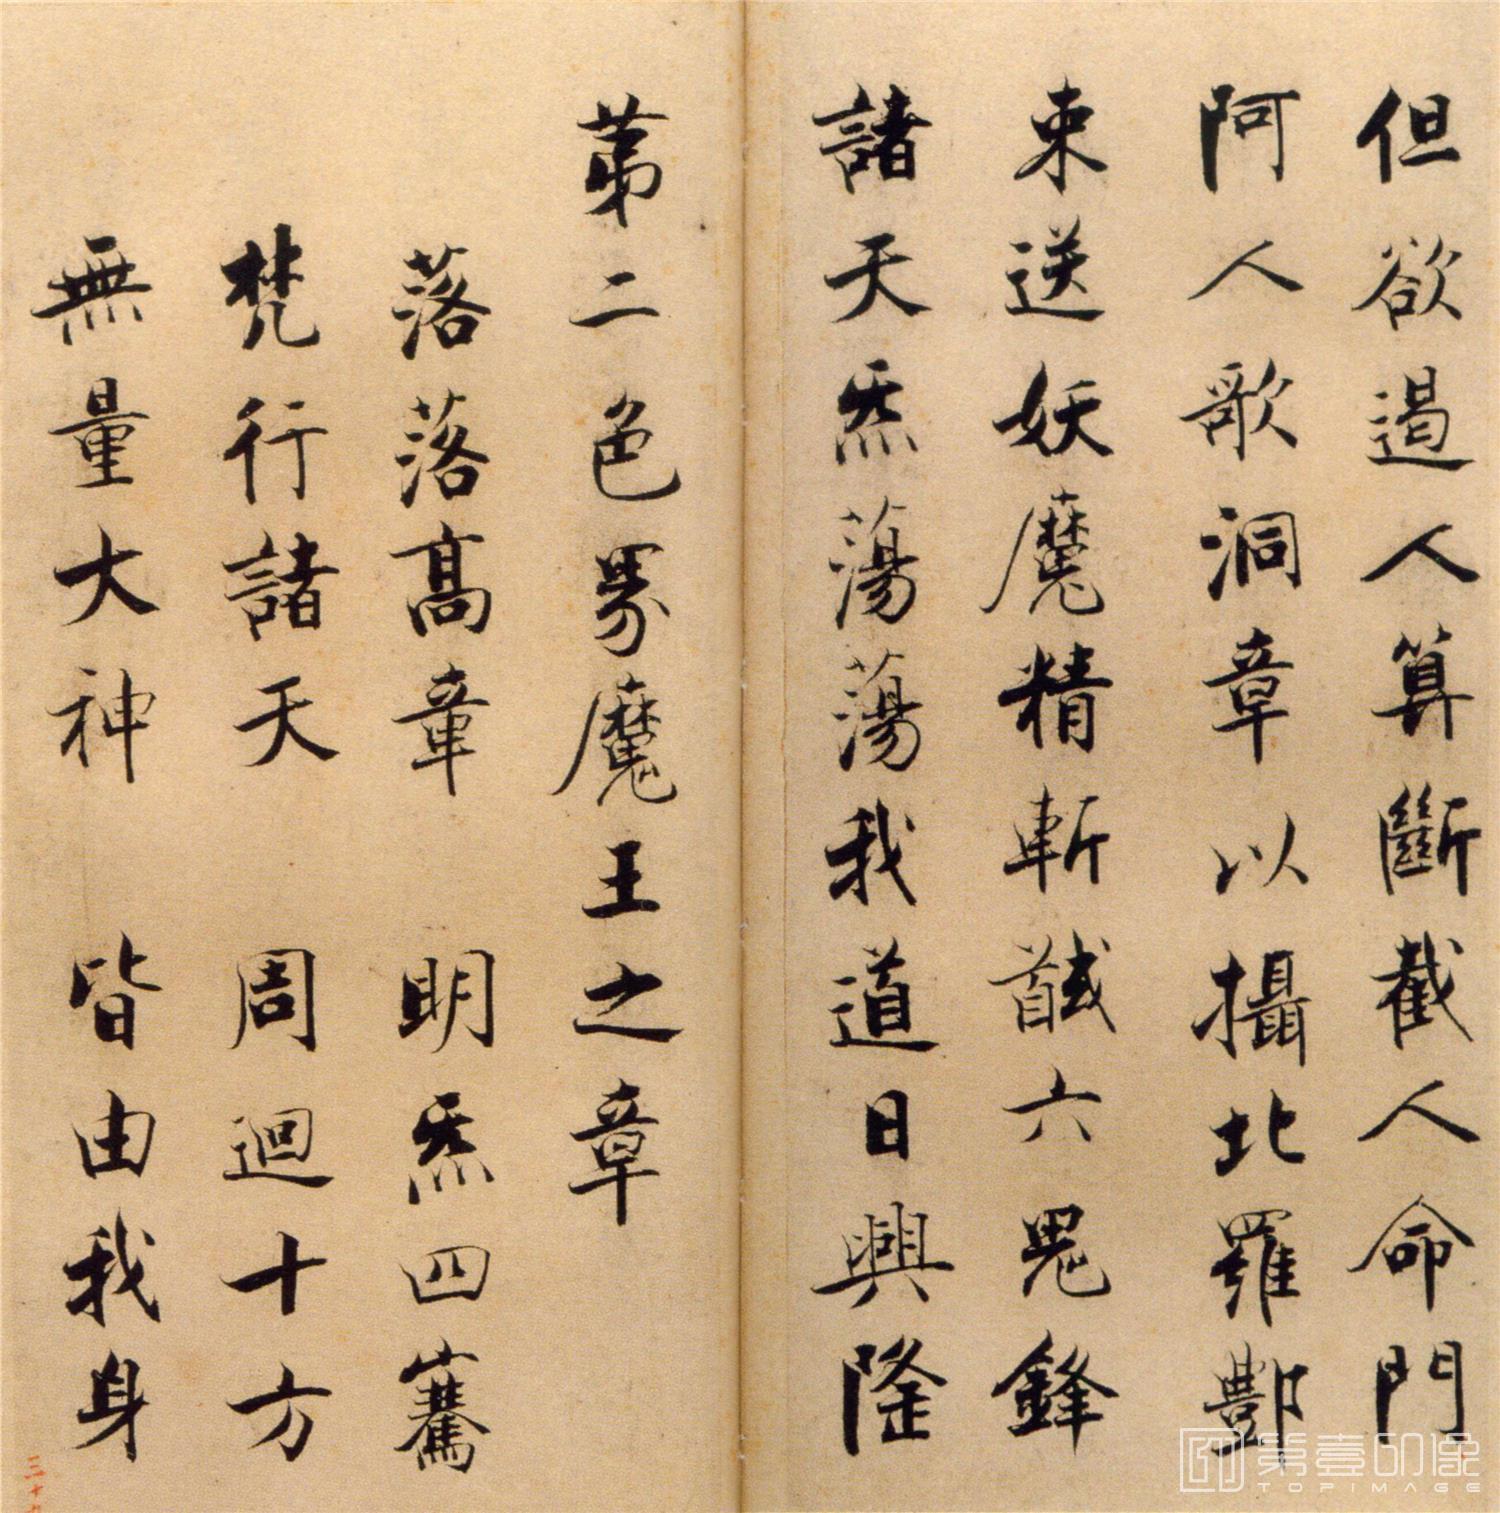 但欲遏人算斷截人命門
阿人歌洞章以攝北羅酆
束送妖魔精斬馘六鬼鋒
諸天炁蕩蕩我道日興隆
第二色界魔王之章
落落高章 明炁四騫
梵行諸天 周迴十方
無量大神 皆由我身
第壹印象
TOPIMAGE